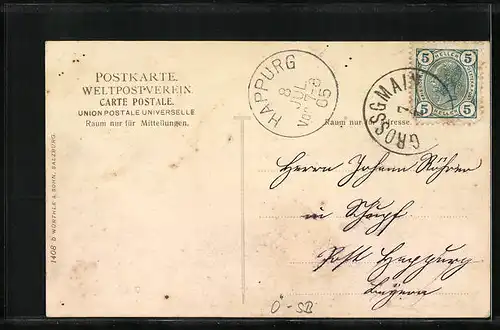 POSTKARTE.
WELTPOSTVEREIN.
CARTE POSTALE.
UNION POSTALE UNIVERSELLE
Raum nur für Mitteilungen.
1408 D WÜRTHLE & SOHN, SALZBURG.
HAPPURG
8
JUL
05
GROSSGMAIN
5 5
5 5
Raum nur für Adresse.
Herrn Johann Röhrer
in Schupf
Post Happurg
Bayern